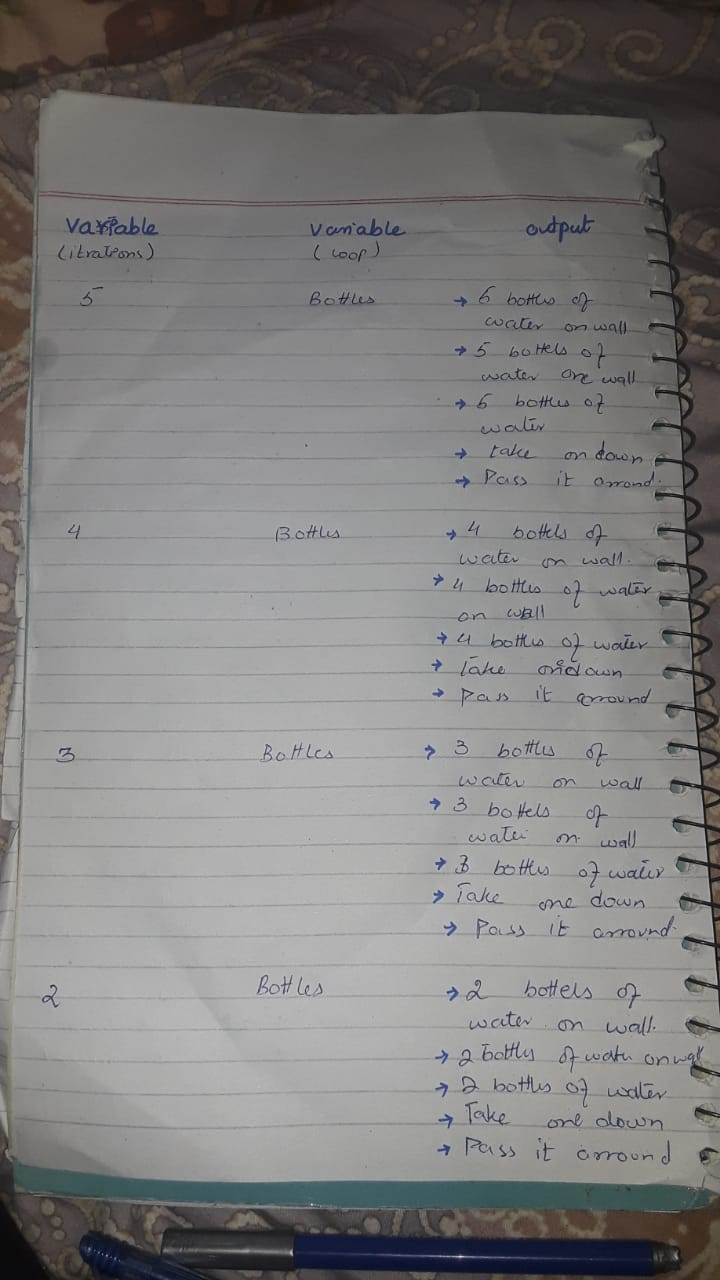 Variable Variable output
(itrations) (loop)
5 Bottles → 5 bottles of
water on wall
→ 5 bottels of
water one wall
→ 5 bottles of
water
→ take on down
→ Pass it arrond.
4 Bottles → 4 bottels of
water on wall.
→ 4 bottles of water
on wall
→ 4 bottles of water
→ Take down
→ Pass it arround
3 Bottles → 3 bottles of
water on wall
→ 3 bottels of
water on wall
→ 3 bottles of water
→ Take one down
→ Pass it arround
2 Bottles → 2 bottels of
water on wall.
→ 2 bottles of water on wall
→ 2 bottles of water
→ Take one down
→ Pass it arround